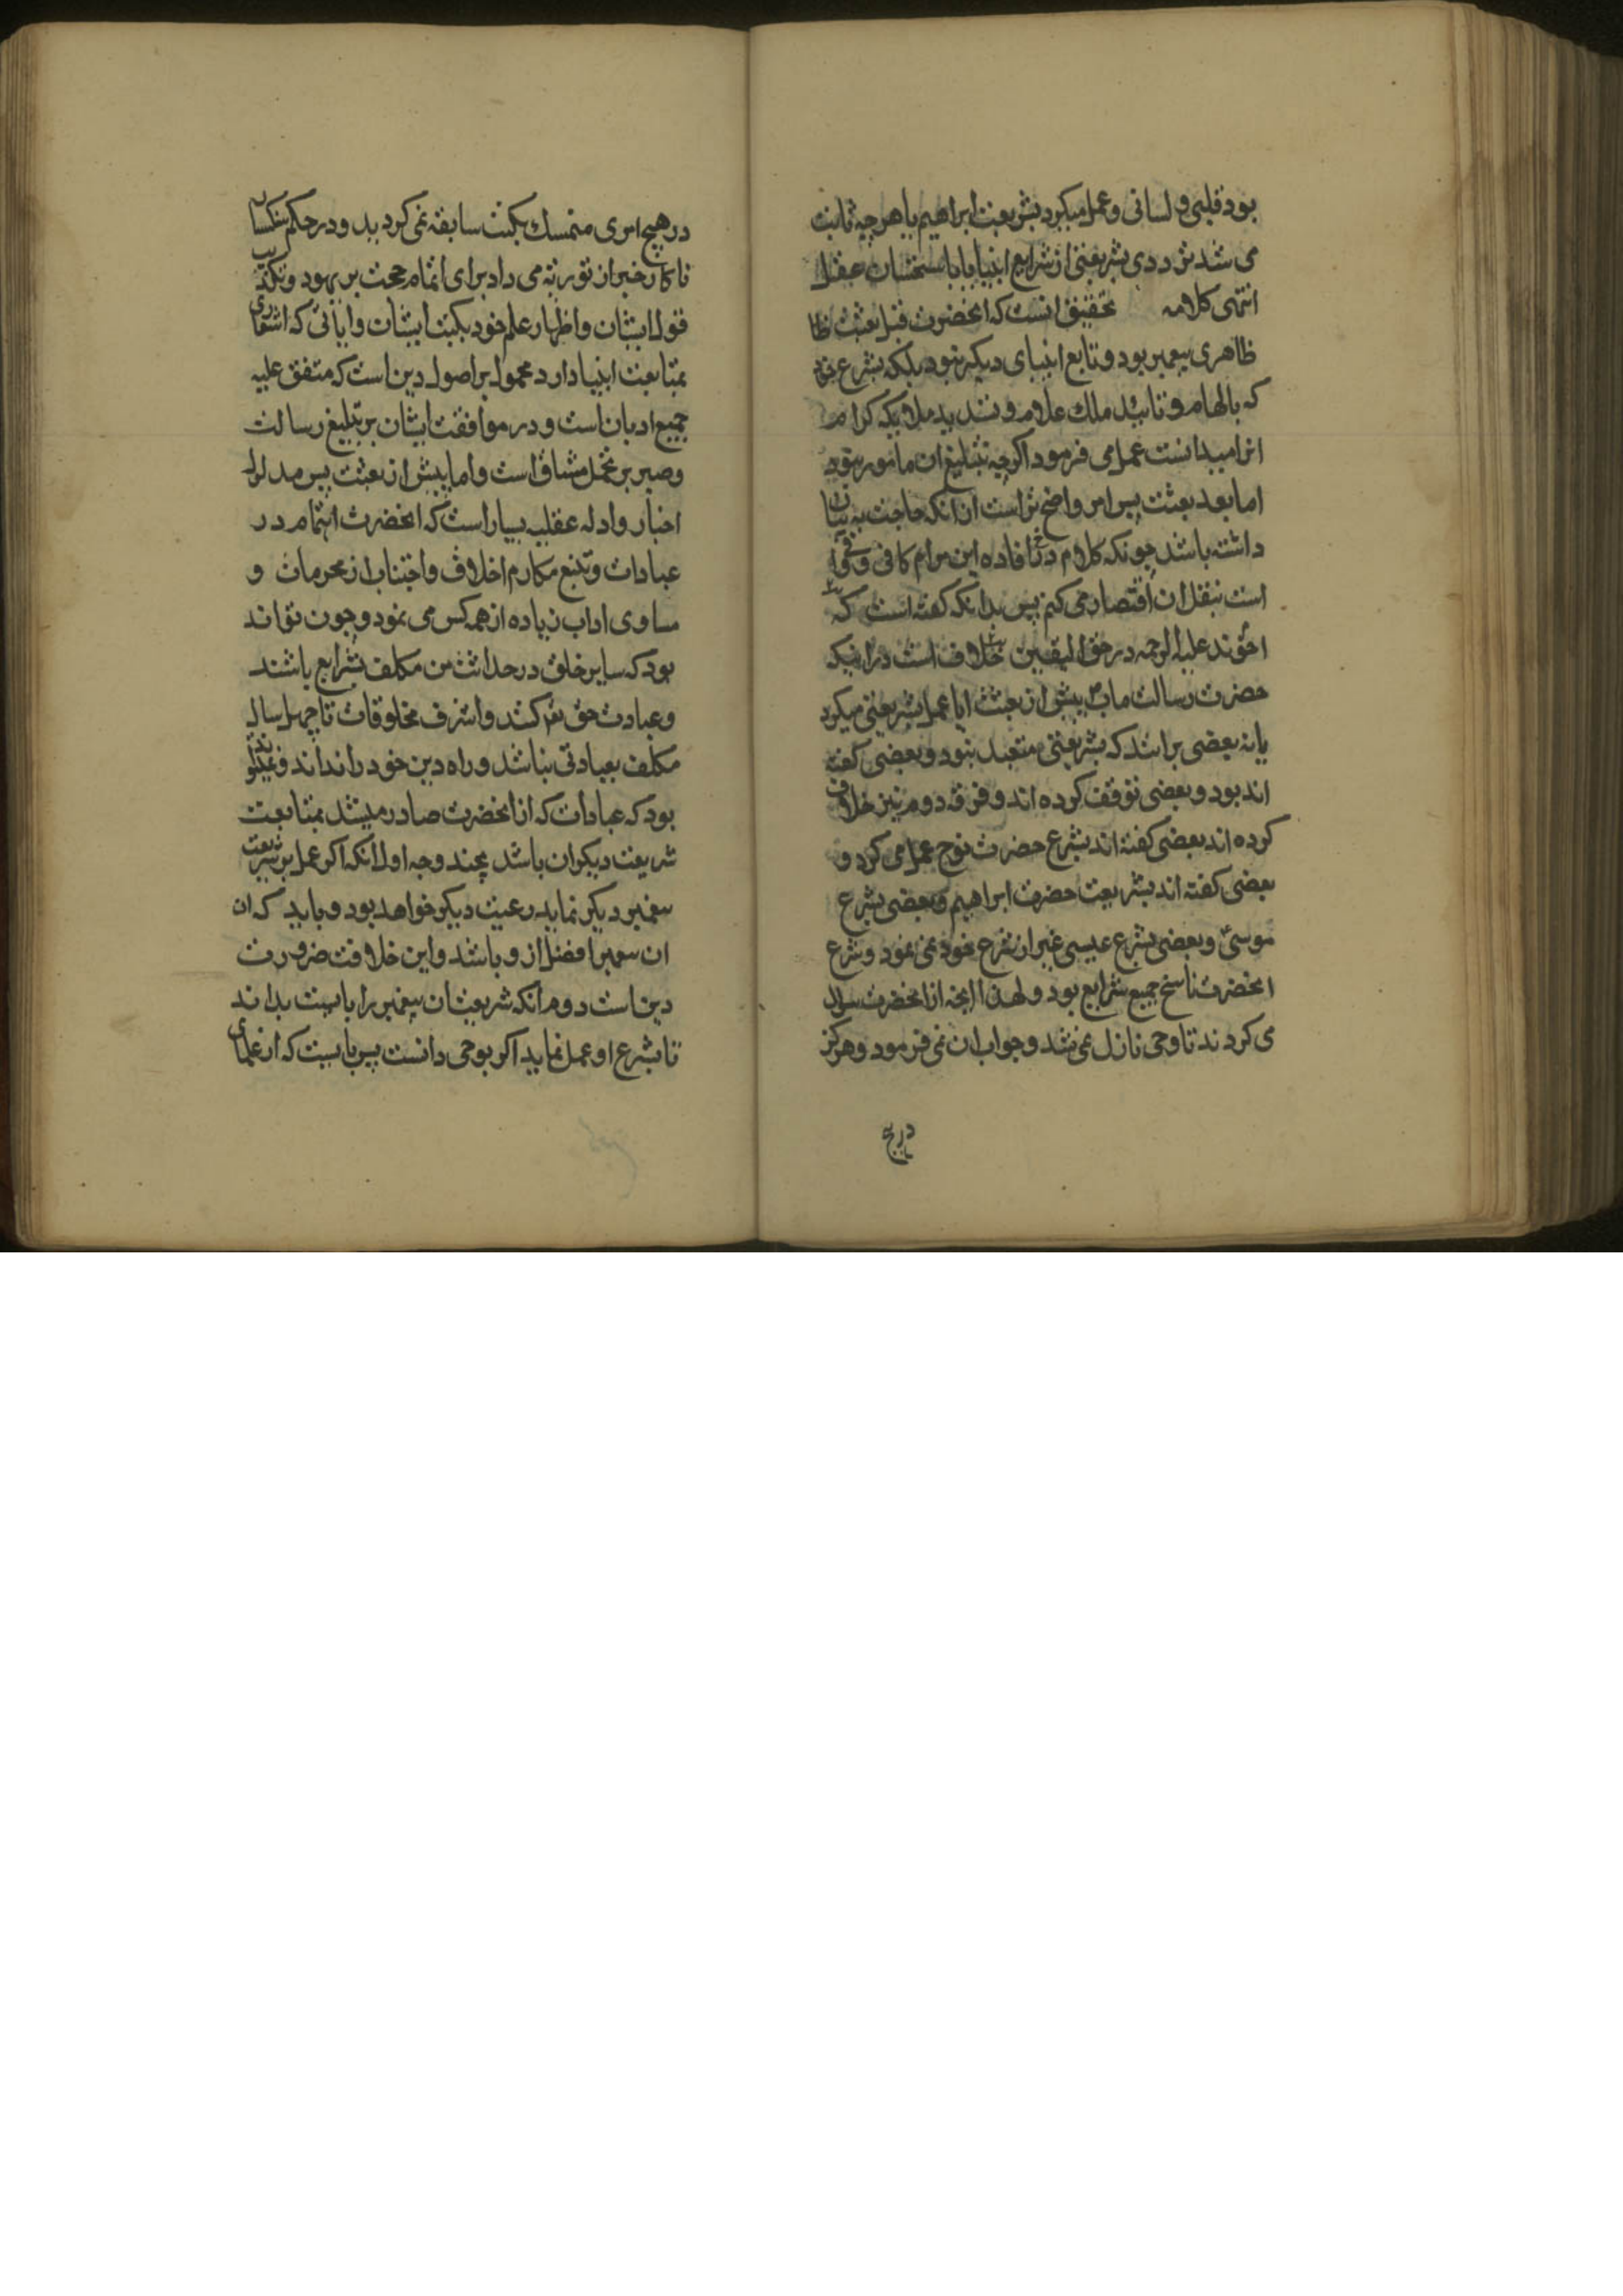 بود قلبی و لسانی و عمل میکرد بشریعت ابراهیم یا هر چه ثابت
می شد نزد وی بشریعتی از شرایع انبیا یا باستحسان عقل
انتهی کلامه تحقیق انست که انحضرت قبل بعثت ظا
ظاهری پیغمبر بود و تابع انبیای دیکر نبود بلکه بشرع خود
که بالهام و تایید ملك علام و تسدید ملایکه کرام
انرا میدانست عمل می فرمود اکرچه بتبلیغ ان مامور نبود
اما بعد بعثت پس امر واضح تر است از انکه حاجت به بیان
داشته باشد چونکه کلام در افاده این مرام کافی و
است بنقل ان اقتصار می کنم پس بدانکه کفته است که
اخوند علیه الرحمه در حق الیقین خلاف است در اینکه
حضرت رسالت ماب پیش از بعثت ایا عمل بشریعتی میکرد
یا نه بعضی برانند که بشریعتی متعبد نبود و بعضی کفته
اند بود و بعضی توقف کرده اند و فرقه دوم نیز خلاف
کرده اند بعضی کفته اند بشرع حضرت نوح عمل می کرد و
بعضی کفته اند بشریعت حضرت ابراهیم و بعضی بشرع
موسی و بعضی بشرع عیسی غیر از شرع خود نمی نمود و شرع
انحضرت ناسخ جمیع شرایع بود و لهذا انچه از انحضرت سوال
می کردند تا وحی نازل نمی شد و جواب ان نمی فرمود و هرکز
در هیچ
در هیچ امری متمسك بکتب سابقه نمی کردید و در حکم سنکسار
زناکار خبر از توریة می داد برای اتمام حجت بر یهود و تکذیب
قول ایشان و اظهار علم خود بکتب ایشان و ایاتی که اشعاری
بمتابعت انبیا دارد محمول بر اصول دین است که متفق علیه
جمیع ادیان است و در موافقت ایشان بر تبلیغ رسالت
و صبر بر تحمل مشاق است و اما پیش از بعثت پس مدلول
اخبار و ادله عقلیه بسیار است که انحضرت اهتمام در
عبادات و تتبع مکارم اخلاق و اجتناب از محرمات و
مساوی اداب زیاده از همه کس می نمود و چون تواند
بود که سایر خلق در حداثت سن مکلف شرایع باشند
و عبادت حق تعم کنند و اشرف مخلوقات تا چهل سال
مکلف بعبادتی نباشد و راه دین خود را نداند و نمیتواند
بود که عبادات که از انحضرت صادر میشد بمتابعت
شریعت دیکران باشد بچند وجه اول انکه اکر عمل بر شریعت
پیغمبر دیکر نماید رعیت دیکر خواهد بود و باید که ان
ان پیغمبر افضل از و باشد و این خلافت ضرورت
دین است دوم انکه شریعت ان پیغمبر را بایست بداند
تا بشرع او عمل نماید اکر بوحی دانست پس بایست که از علمای